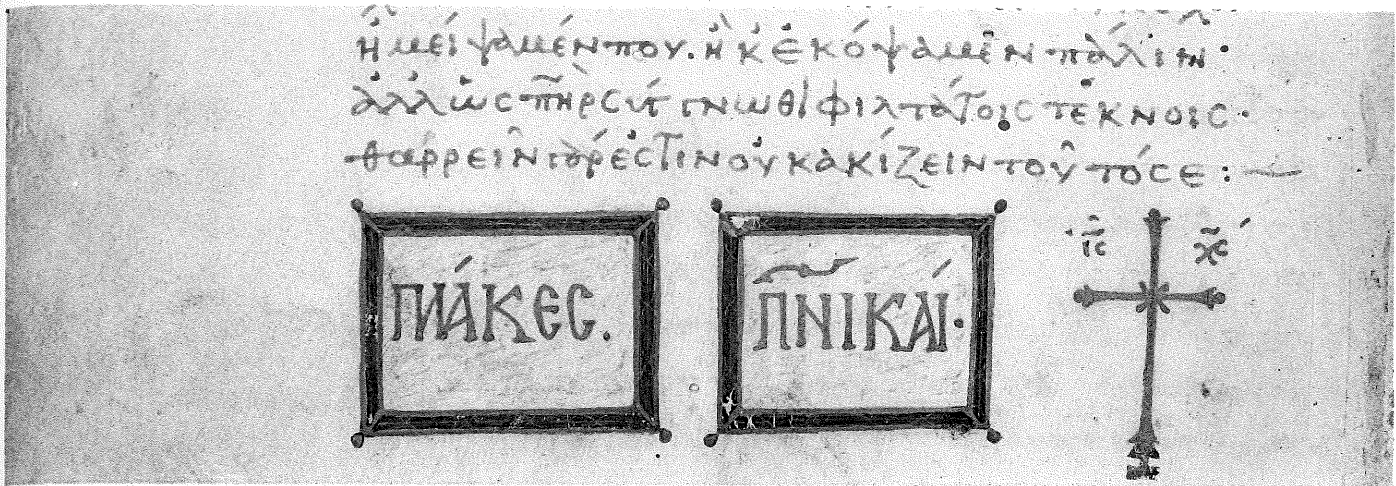 ἢ μείψαμέν που. ἢ κἐκόψαμεν πάλιν·
ἄλλως π̅η̅ρ̅ γνωθι φιλτάτοις τέκνοις·
θαρρεῖν γάρ ἐστιν οὐ κακίζειν τοῦτό σε :—
ΠΙΝΆΚΕC.
Π̅Ν̅ΙΚΑΊ·
ι̅ς̅ χ̅ς̅